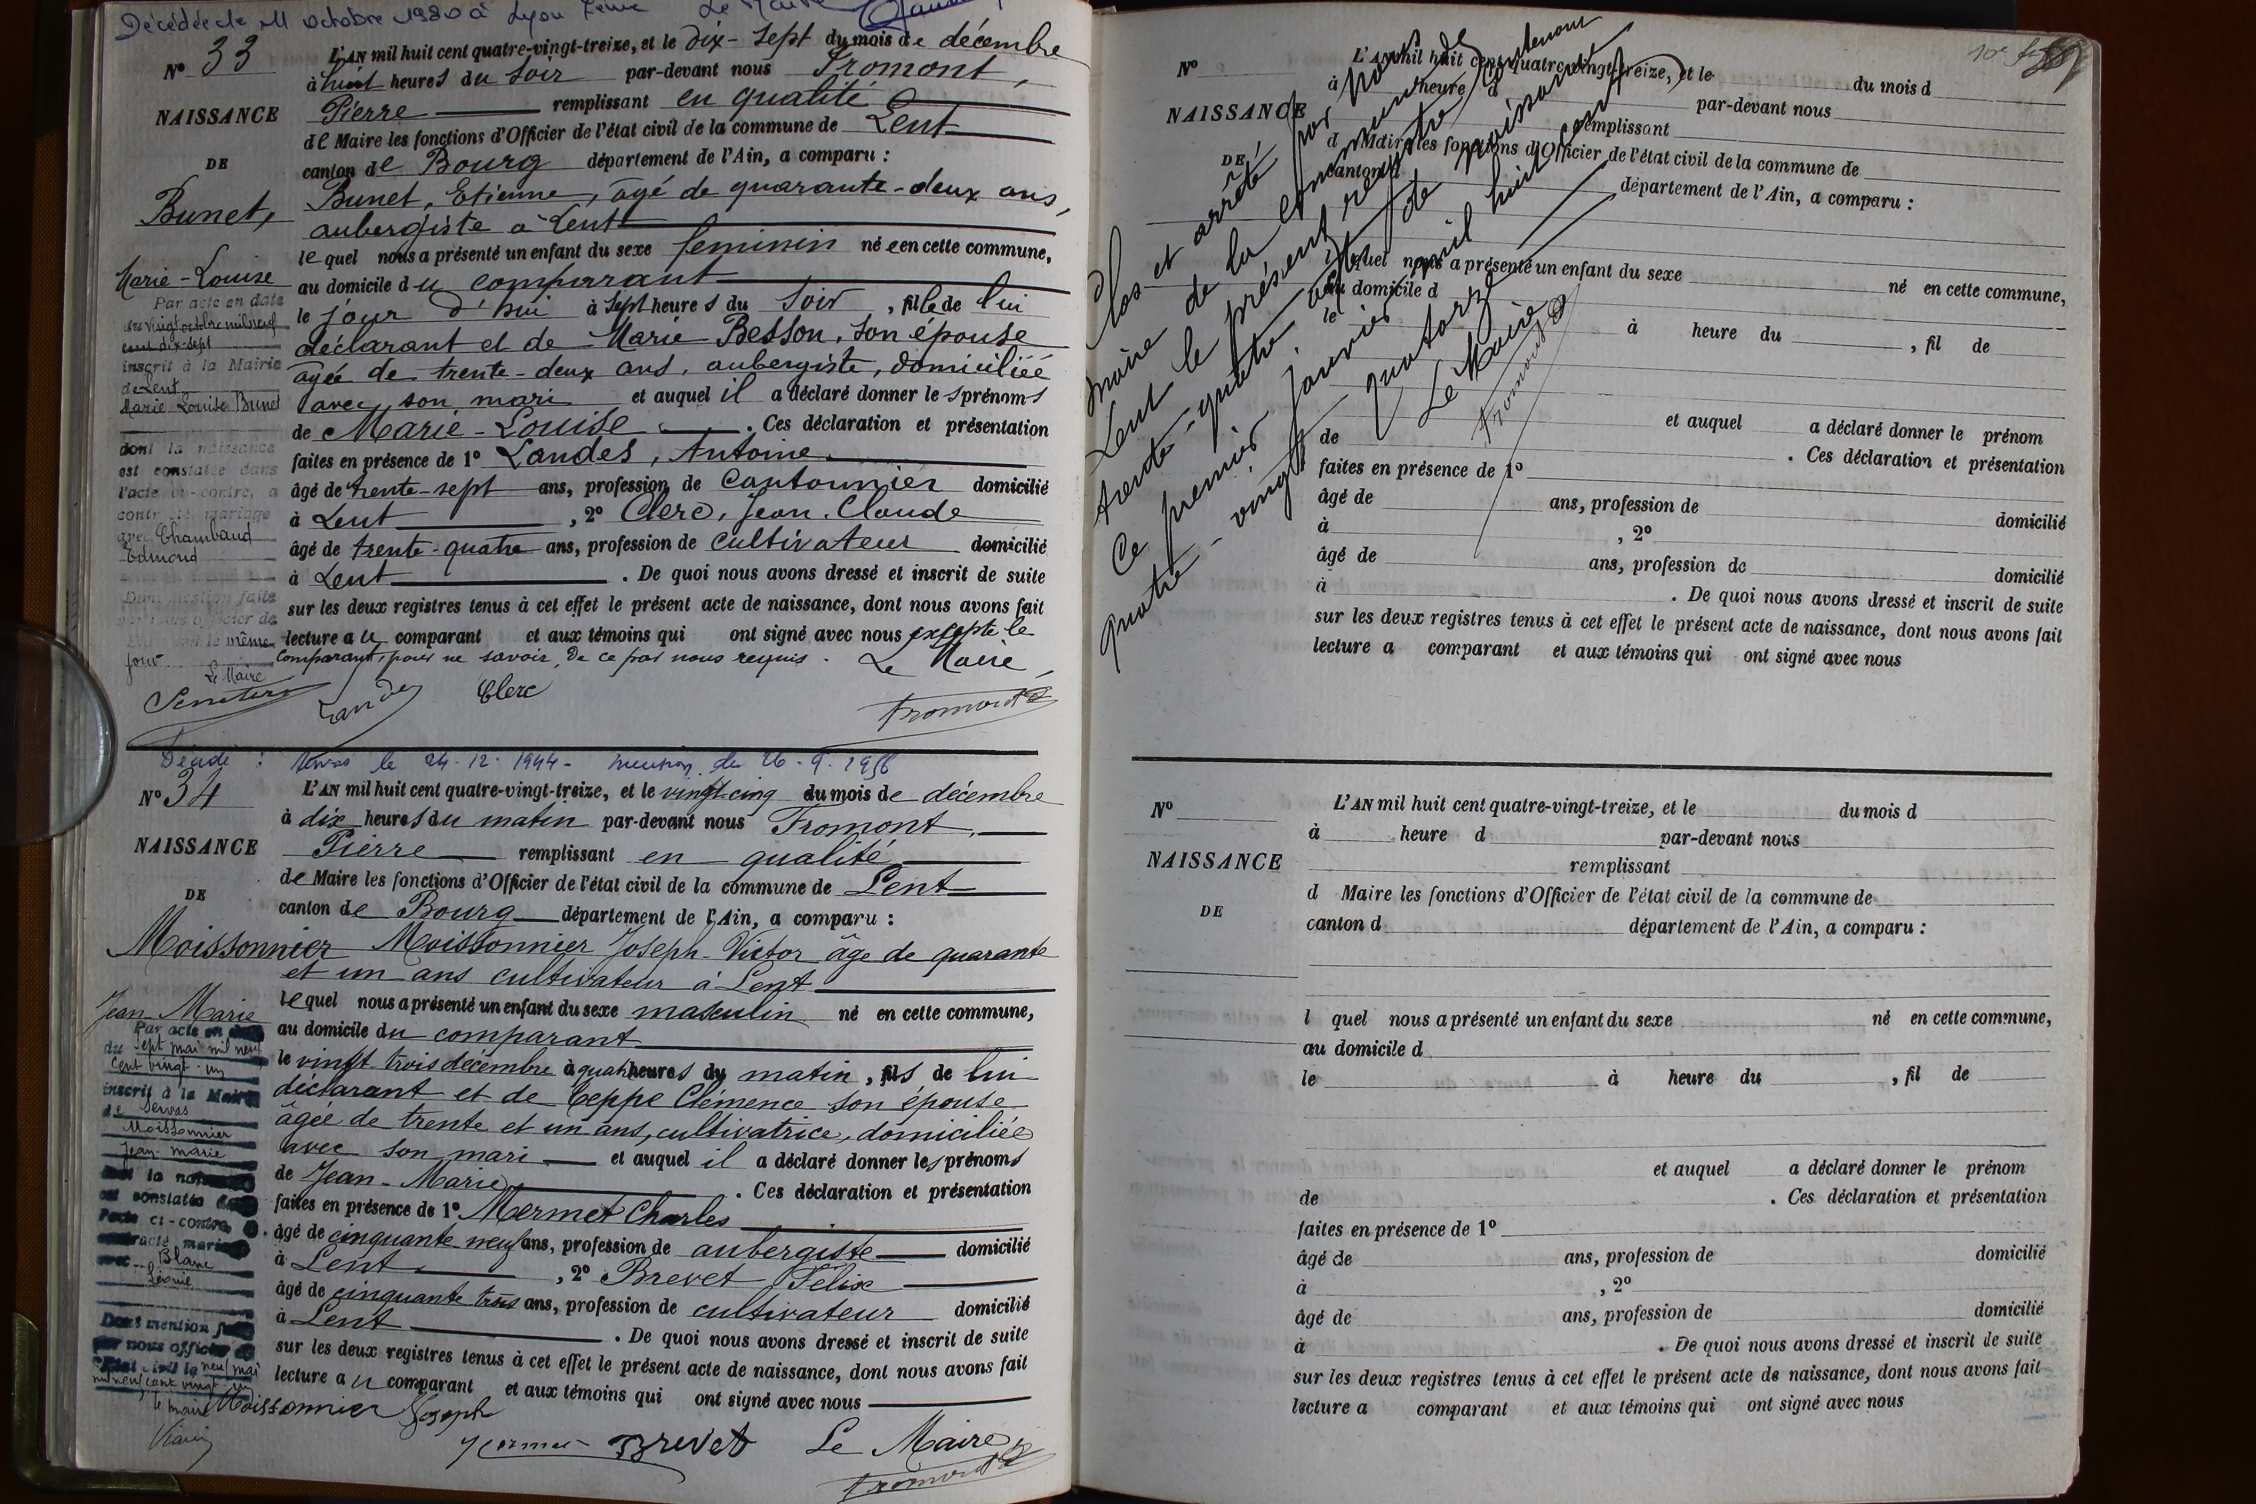 Décédée le 11 octobre 1980 à Lyon Le Maire
N° 33
L'AN mil huit cent quatre-vingt-treize, et le dix-sept du mois de décembre
à huit heures du soir par-devant nous Fromont,
NAISSANCE
Pierre remplissant en qualité
de Maire les fonctions d'Officier de l'état civil de la commune de Lent
DE
canton de Bourg département de l'Ain, a comparu :
Bunet,
Bunet, Etienne, âgé de quarante-deux ans,
aubergiste à Lent
le quel nous a présenté un enfant du sexe feminin né e en cette commune,
Marie-Louise
au domicile du comparant
Par acte en date
du vingt octobre mil neuf
cent dix-sept
inscrit à la Mairie
de Lent
Marie Louise Bunet
dont la naissance
est constatée dans
l'acte ci-contre, a
contracté mariage
avec Chambaud
Edmond
Dont mention faite
par nous officier de
l'Etat civil le même
jour
Le Maire
le jour d'hui à sept heures du soir, fille de lui
déclarant et de Marie Besson, son épouse
âgée de trente-deux ans, aubergiste, domiciliée
avec son mari et auquel il a déclaré donner les prénoms
de Marie-Louise. Ces déclaration et présentation
faites en présence de 1° Landes, Antoine
âgé de trente-sept ans, profession de cantonnier domicilié
à Lent, 2° Clerc, Jean-Claude
âgé de trente-quatre ans, profession de cultivateur domicilié
à Lent. De quoi nous avons dressé et inscrit de suite
sur les deux registres tenus à cet effet le présent acte de naissance, dont nous avons fait
lecture au comparant et aux témoins qui ont signé avec nous excepté le
comparant, pour ne savoir, de ce par nous requis. Le Maire,
Landes Clerc Fromont
Décédé : Servas le 24.12.1944 - mention du 26.9.1956
N° 34
L'AN mil huit cent quatre-vingt-treize, et le vingt-cinq du mois de décembre
à dix heures du matin par-devant nous Fromont,
NAISSANCE
Pierre remplissant en qualité
de Maire les fonctions d'Officier de l'état civil de la commune de Lent
DE
canton de Bourg département de l'Ain, a comparu :
Moissonnier
Moissonnier Joseph-Victor âgé de quarante
et un ans cultivateur à Lent
le quel nous a présenté un enfant du sexe masculin né en cette commune,
Jean-Marie
au domicile du comparant
Par acte en date
du sept mai mil neuf
cent vingt-un
inscrit à la Mairie
de Servas
Moissonnier
Jean-Marie
dont la naissance
est constatée dans
l'acte ci-contre a
contracté mariage
avec Blanc
Léonie
Dont mention faite
par nous officier de
l'Etat civil le neuf mai
mil neuf cent vingt-un
le maire
le vingt-trois décembre à quatre heures du matin, fils de lui
déclarant et de Ceppe Clémence son épouse
âgée de trente et un ans, cultivatrice, domiciliée
avec son mari et auquel il a déclaré donner les prénoms
de Jean-Marie. Ces déclaration et présentation
faites en présence de 1° Mermet Charles
âgé de cinquante neuf ans, profession de aubergiste domicilié
à Lent, 2° Brevet Félix
âgé de cinquante trois ans, profession de cultivateur domicilié
à Lent. De quoi nous avons dressé et inscrit de suite
sur les deux registres tenus à cet effet le présent acte de naissance, dont nous avons fait
lecture au comparant et aux témoins qui ont signé avec nous
Moissonnier Joseph
Mermet Brevet Le Maire,
Fromont
Clos et arrêté par nous
maire de la commune de
Lent le présent registre contenant
trente-quatre actes de naissance
Ce premier janvier mil huit cent
quatre-vingt-quatorze
Le Maire
Fromont
N°
L'AN mil huit cent quatre-vingt-treize, et le du mois d
à heure d par-devant nous
NAISSANCE
remplissant
d Maire les fonctions d'Officier de l'état civil de la commune de
DE
canton d département de l'Ain, a comparu :
l quel nous a présenté un enfant du sexe né en cette commune,
au domicile d
le à heure du , fil de
et auquel a déclaré donner le prénom
de . Ces déclaration et présentation
faites en présence de 1°
âgé de ans, profession de domicilié
à , 2°
âgé de ans, profession de domicilié
à . De quoi nous avons dressé et inscrit de suite
sur les deux registres tenus à cet effet le présent acte de naissance, dont nous avons fait
lecture a comparant et aux témoins qui ont signé avec nous
N°
L'AN mil huit cent quatre-vingt-treize, et le du mois d
à heure d par-devant nous
NAISSANCE
remplissant
d Maire les fonctions d'Officier de l'état civil de la commune de
DE
canton d département de l'Ain, a comparu :
l quel nous a présenté un enfant du sexe né en cette commune,
au domicile d
le à heure du , fil de
et auquel a déclaré donner le prénom
de . Ces déclaration et présentation
faites en présence de 1°
âgé de ans, profession de domicilié
à , 2°
âgé de ans, profession de domicilié
à . De quoi nous avons dressé et inscrit de suite
sur les deux registres tenus à cet effet le présent acte de naissance, dont nous avons fait
lecture a comparant et aux témoins qui ont signé avec nous